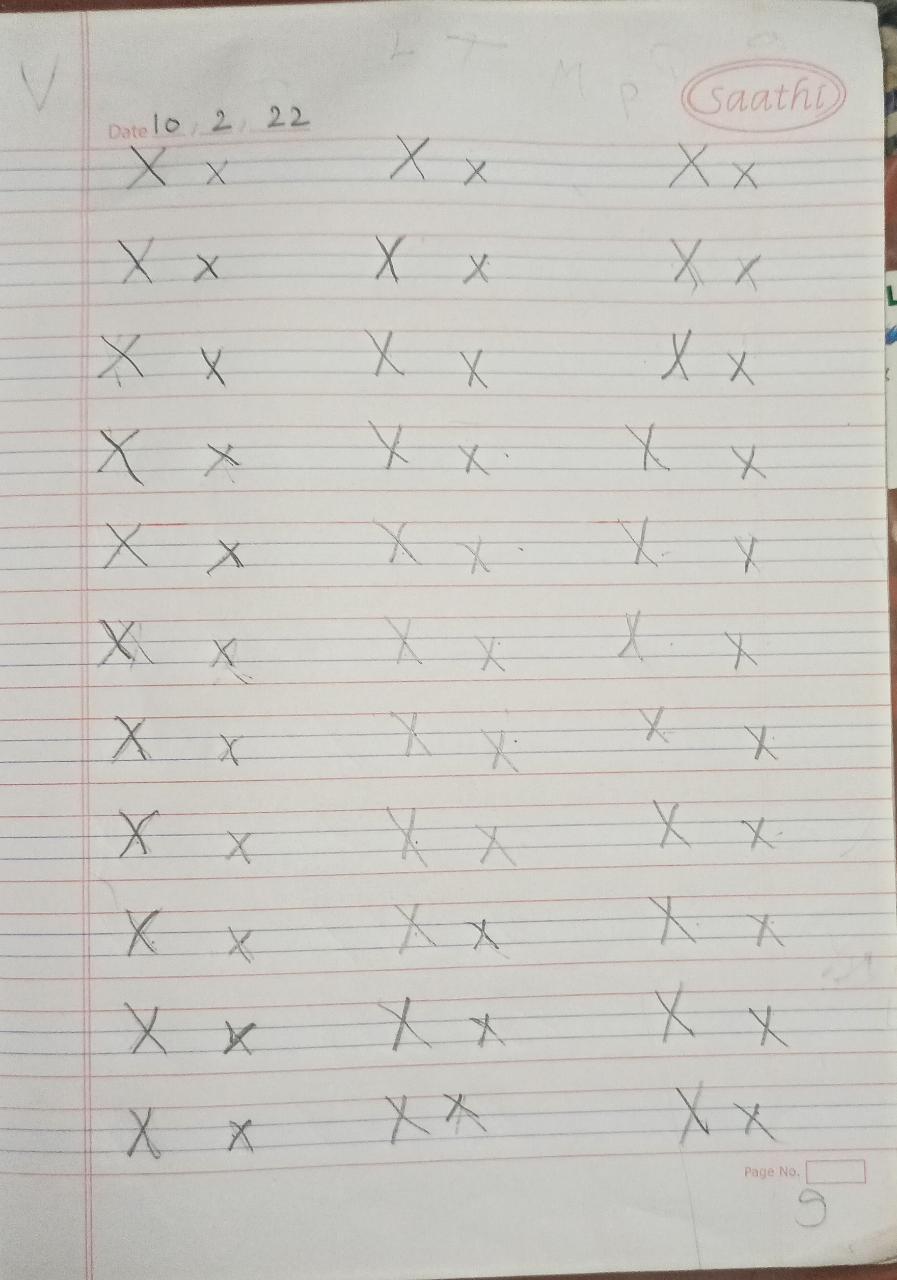 V L T M P
saathi
Date 10, 2, 22
X x X x X x
X x X x X x
X x X x X x
X x X x X x
X x X x X x
X x X x X x
X x X x X x
X x X x X x
X x X x X x
X x X x X x
X x X x X x
Page No.
9